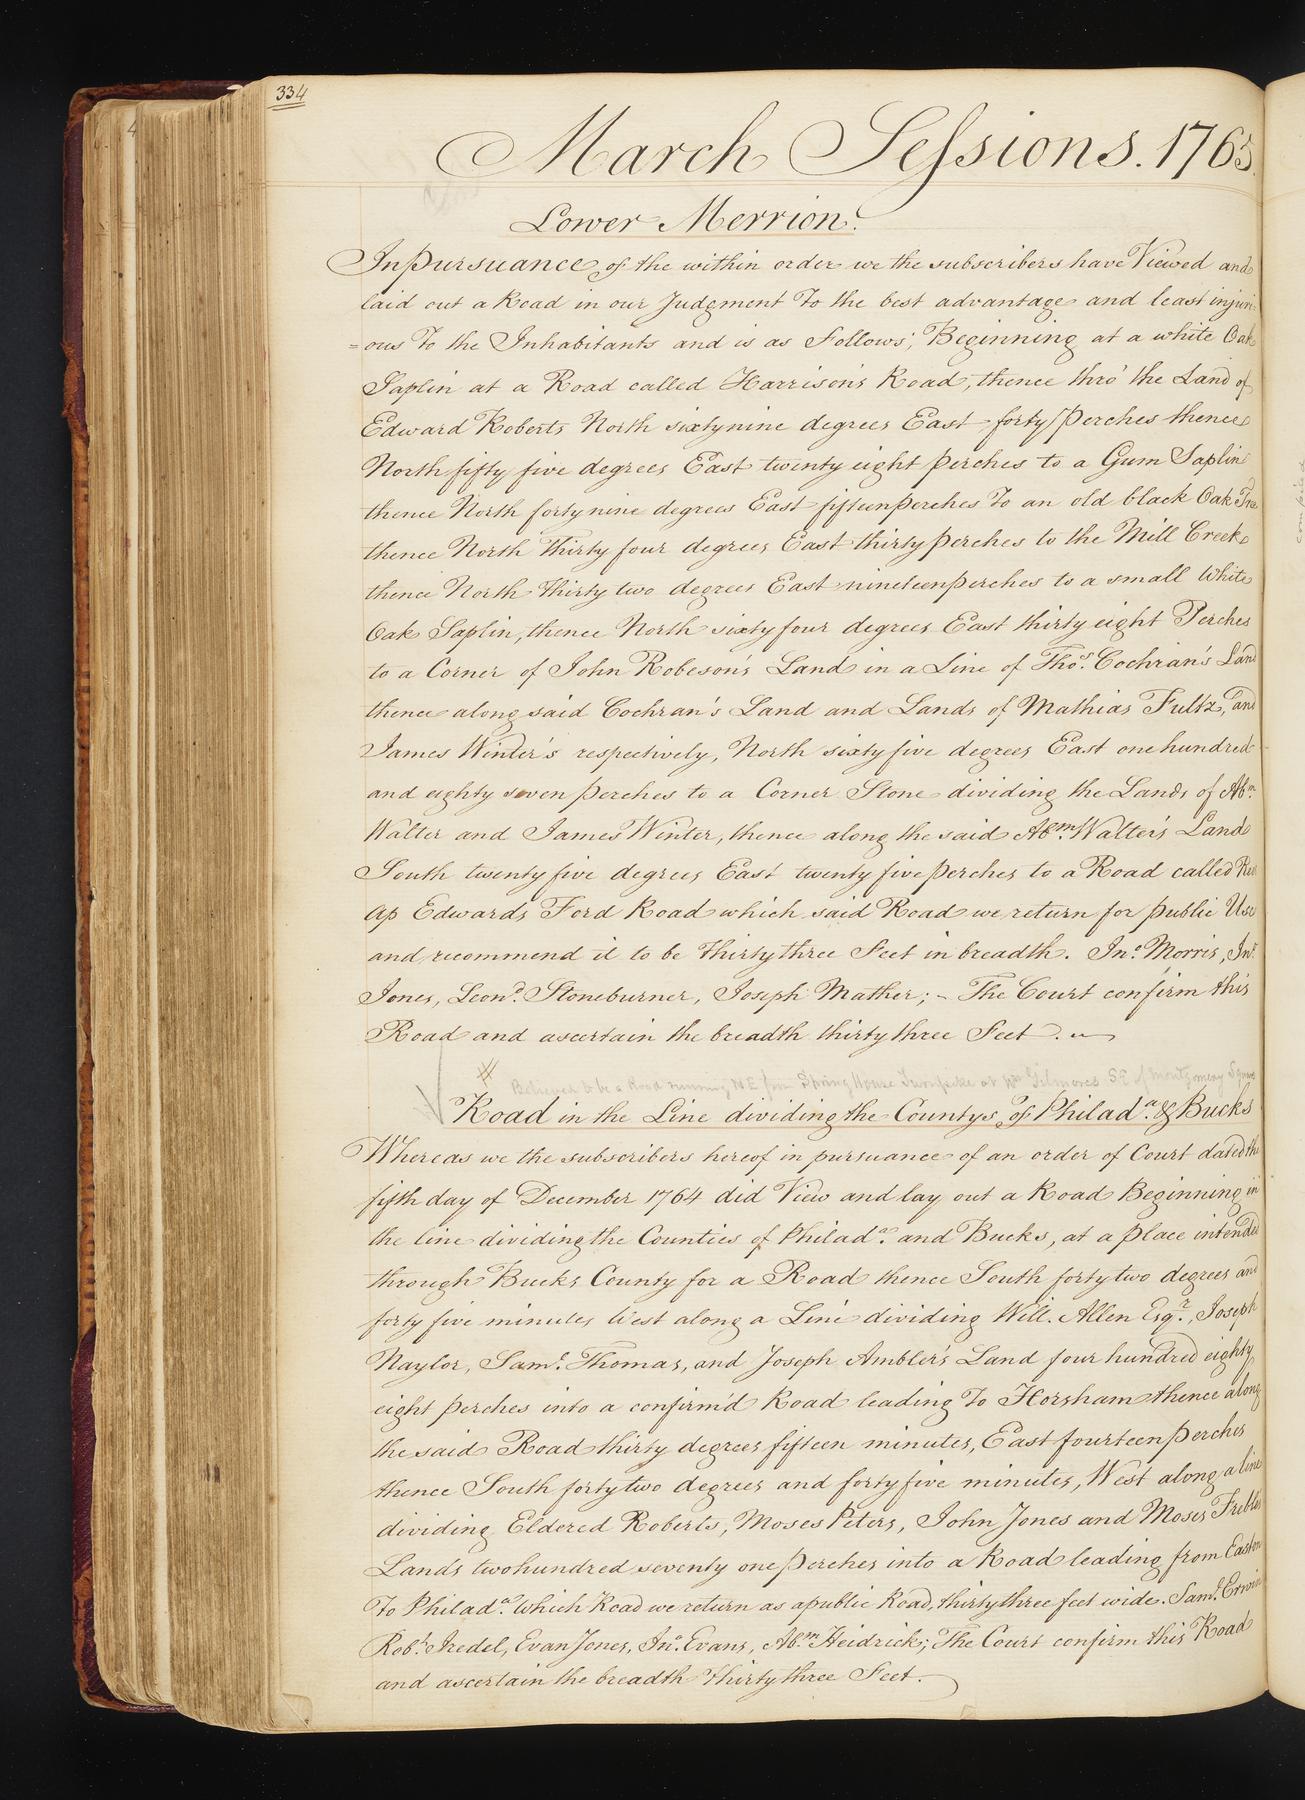 334
March Sessions. 1765.
Lower Merrion.
In pursuance of the within order we the subscribers have Viewed and
laid out a Road in our Judgment To the best advantage and least injuri-
=ous To the Inhabitants and is as Follows; Beginning at a white Oak
Saplin at a Road called Harrison's Road, thence thro' the Land of
Edward Roberts North sixty nine degrees East forty perches thence
North fifty five degrees East twenty eight perches to a Gum Saplin
thence North forty nine degrees East fifteen perches To an old black Oak Tree
thence North Thirty four degrees East thirty perches to the Mill Creek
thence North Thirty two degrees East nineteen perches to a small White
Oak Saplin, thence North sixty four degrees East thirty eight Perches
to a Corner of John Robeson's Land in a Line of Thos. Cochran's Land
thence along said Cochran's Land and Lands of Mathias Fultz, and
James Winter's respectively, North sixty five degrees East one hundred
and eighty seven perches to a Corner Stone dividing the Lands of Abm.
Walter and James Winter, thence along the said Abm. Walter's Land
South twenty five degrees East twenty five perches to a Road called Rees
ap Edwards Ford Road which said Road we return for public Use
and recommend it to be Thirty three Feet in breadth. Jno. Morris, Jno.
Jones, Leond. Stoneburner, Joseph Mather; - The Court confirm this
Road and ascertain the breadth thirty three Feet.
Believed to be a Road running N.E. from Spring House Turnpike at Wm Gilmores S.E. of Montgomery Square
Road in the Line dividing the Countys of Philada. & Bucks
Whereas we the subscribers hereof in pursuance of an order of Court dated the
fifth day of December 1764 did View and lay out a Road Beginning in
the line dividing the Counties of Philada. and Bucks, at a place intended
through Bucks County for a Road thence South forty two degrees and
forty five minutes West along a Line dividing Will. Allen Esqr., Joseph
Naylor, Saml. Thomas, and Joseph Ambler's Land four hundred eighty
eight perches into a confirm'd Road leading To Horsham thence along
the said Road thirty degrees fifteen minutes, East fourteen perches
thence South forty two degrees and forty five minutes, West along a line
dividing Eldered Roberts, Moses Peters, John Jones and Moses
Lands two hundred seventy one perches into a Road leading from Easton
To Philada. Which Road we return as a public Road, thirty three feet wide. Saml. Erwin
Robt. Iredel, Evan Jones, Jno. Evans, Abm. Heidrick; The Court confirm this Road
and ascertain the breadth Thirty three Feet.